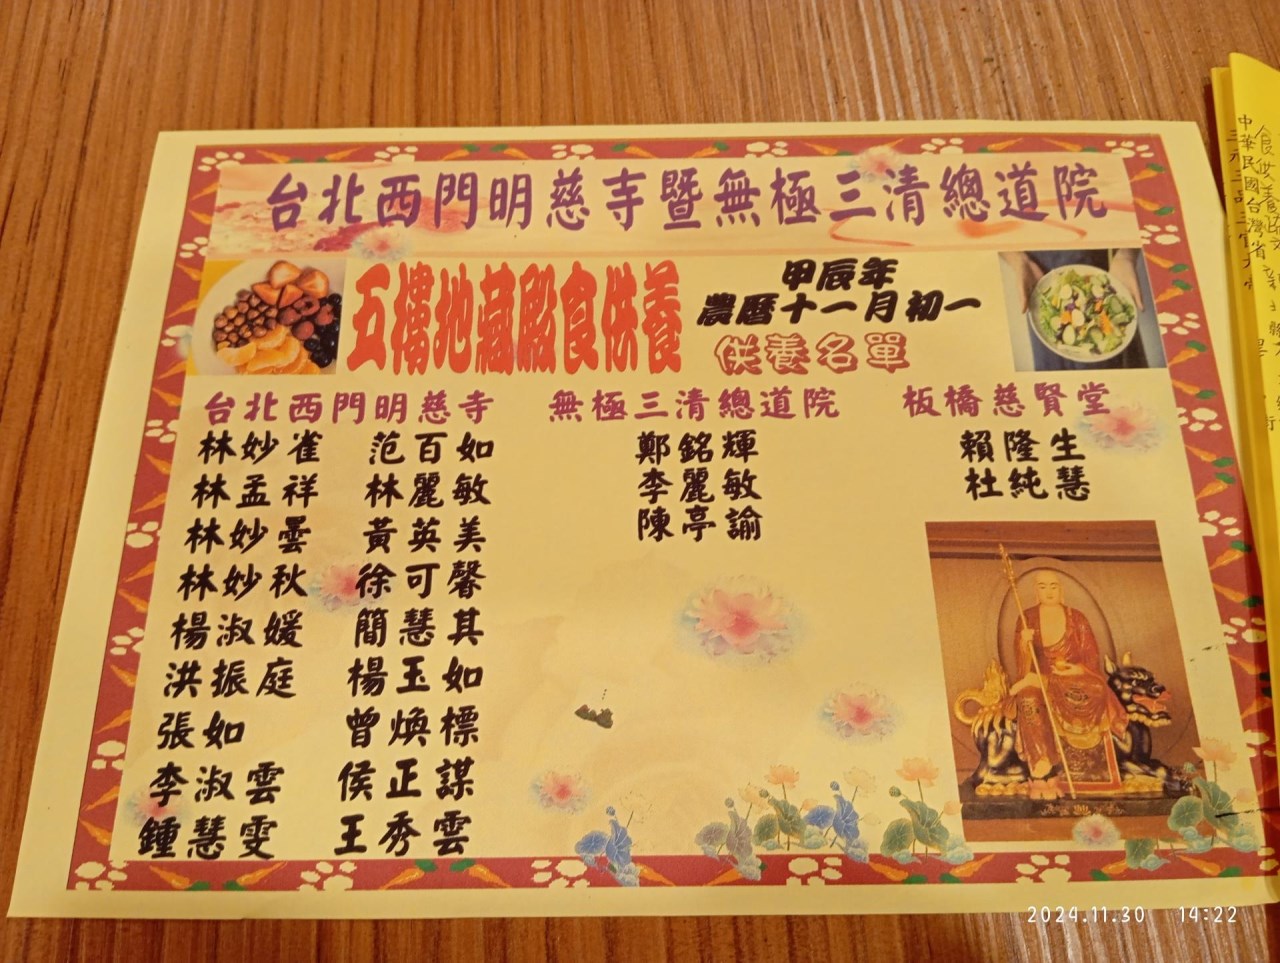 台北西門明慈寺暨無極三清總道院
五樓地藏殿食供養
甲辰年
農曆十一月初一
供養名單
台北西門明慈寺
林妙雀 范百如
林孟祥 林麗敏
林妙曇 黃英美
林妙秋 徐可馨
楊淑媛 簡慧其
洪振庭 楊玉如
張如 曾煥標
李淑雲 侯正謀
鍾慧雯 王秀雲
無極三清總道院
鄭銘輝
李麗敏
陳亭諭
板橋慈賢堂
賴隆生
杜純慧
食供養
中華民國台灣省
2024.11.30 14:22